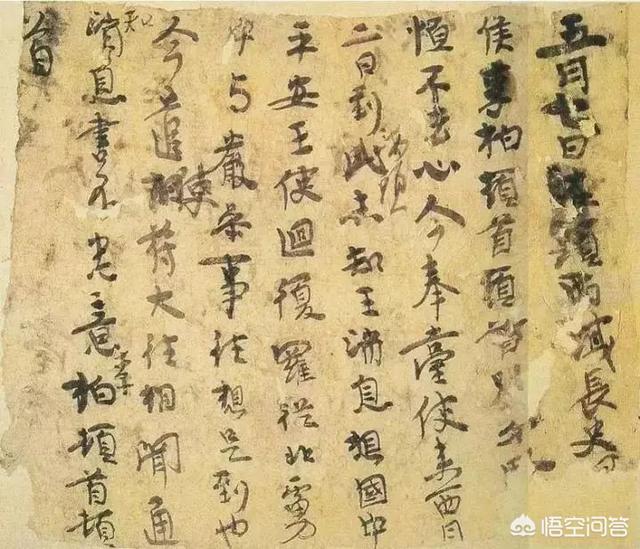 五月七日海頭西域長史
侯李柏頓首頓首別
恒不去心今奉臺使來西月
二日到此海頭未知王消息想國中
平安王使迴復羅從北虜
中與嚴參事往想是到也
今遣使符大往相聞通
知消息書不悉意李柏頓首頓
首
悟空问答